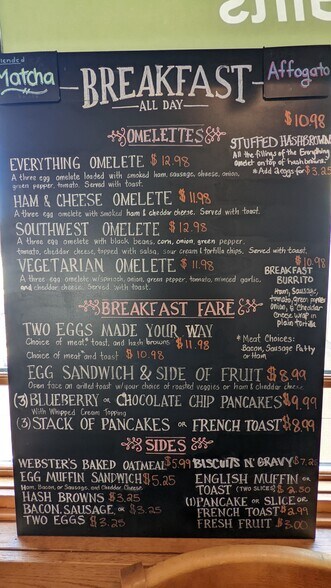 Matcha
BREAKFAST
ALL DAY
Affogato
OMELETTES
$10.98
STUFFED HASHBROWNS
All the fillings of the Everything
omelet on top of hashbrowns!
*Add 2 eggs for $3.25
EVERYTHING OMELETE $12.98
A three egg omelete loaded with smoked ham, sausage, cheese, onion,
green pepper, tomato. Served with toast.
HAM & CHEESE OMELETE $11.98
A three egg omelete with smoked ham & cheddar cheese. Served with toast.
SOUTHWEST OMELETE $12.98
A three egg omelete with black beans, corn, onion, green pepper,
tomato, cheddar cheese, topped with salsa, sour cream & tortilla chips. Served with toast.
VEGETARIAN OMELETE $11.98
A three egg omelete w/spinach, onion, green pepper, tomato, minced garlic,
and cheddar cheese. Served with toast.
$10.98
BREAKFAST
BURRITO
Ham, Sausage,
tomato, green pepper
Onion, & Cheddar
Cheese wrap in
plain tortilla
BREAKFAST FARE
TWO EGGS MADE YOUR WAY
Choice of meat* toast, and hash browns $11.98
Choice of meat* and toast $10.98
* Meat Choices:
Bacon, Sausage Patty
or Ham
EGG SANDWICH & SIDE OF FRUIT $8.99
Open face on grilled toast w/your choice of roasted veggies or ham & cheddar cheese
(3) BLUEBERRY or CHOCOLATE CHIP PANCAKES $9.99
With Whipped Cream Topping
(3) STACK OF PANCAKES or FRENCH TOAST $8.99
SIDES
WEBSTER'S BAKED OATMEAL $5.99
EGG MUFFIN SANDWICH $5.25
Ham, Bacon, or Sausage, and Cheddar Cheese
HASH BROWNS $3.25
BACON, SAUSAGE or $3.25
TWO EGGS $3.25
BISCUITS N' GRAVY $7.2
ENGLISH MUFFIN or
TOAST (TWO SLICES) $2.50
(1) PANCAKE or SLICE OF
FRENCH TOAST $2.99
FRESH FRUIT $3.00